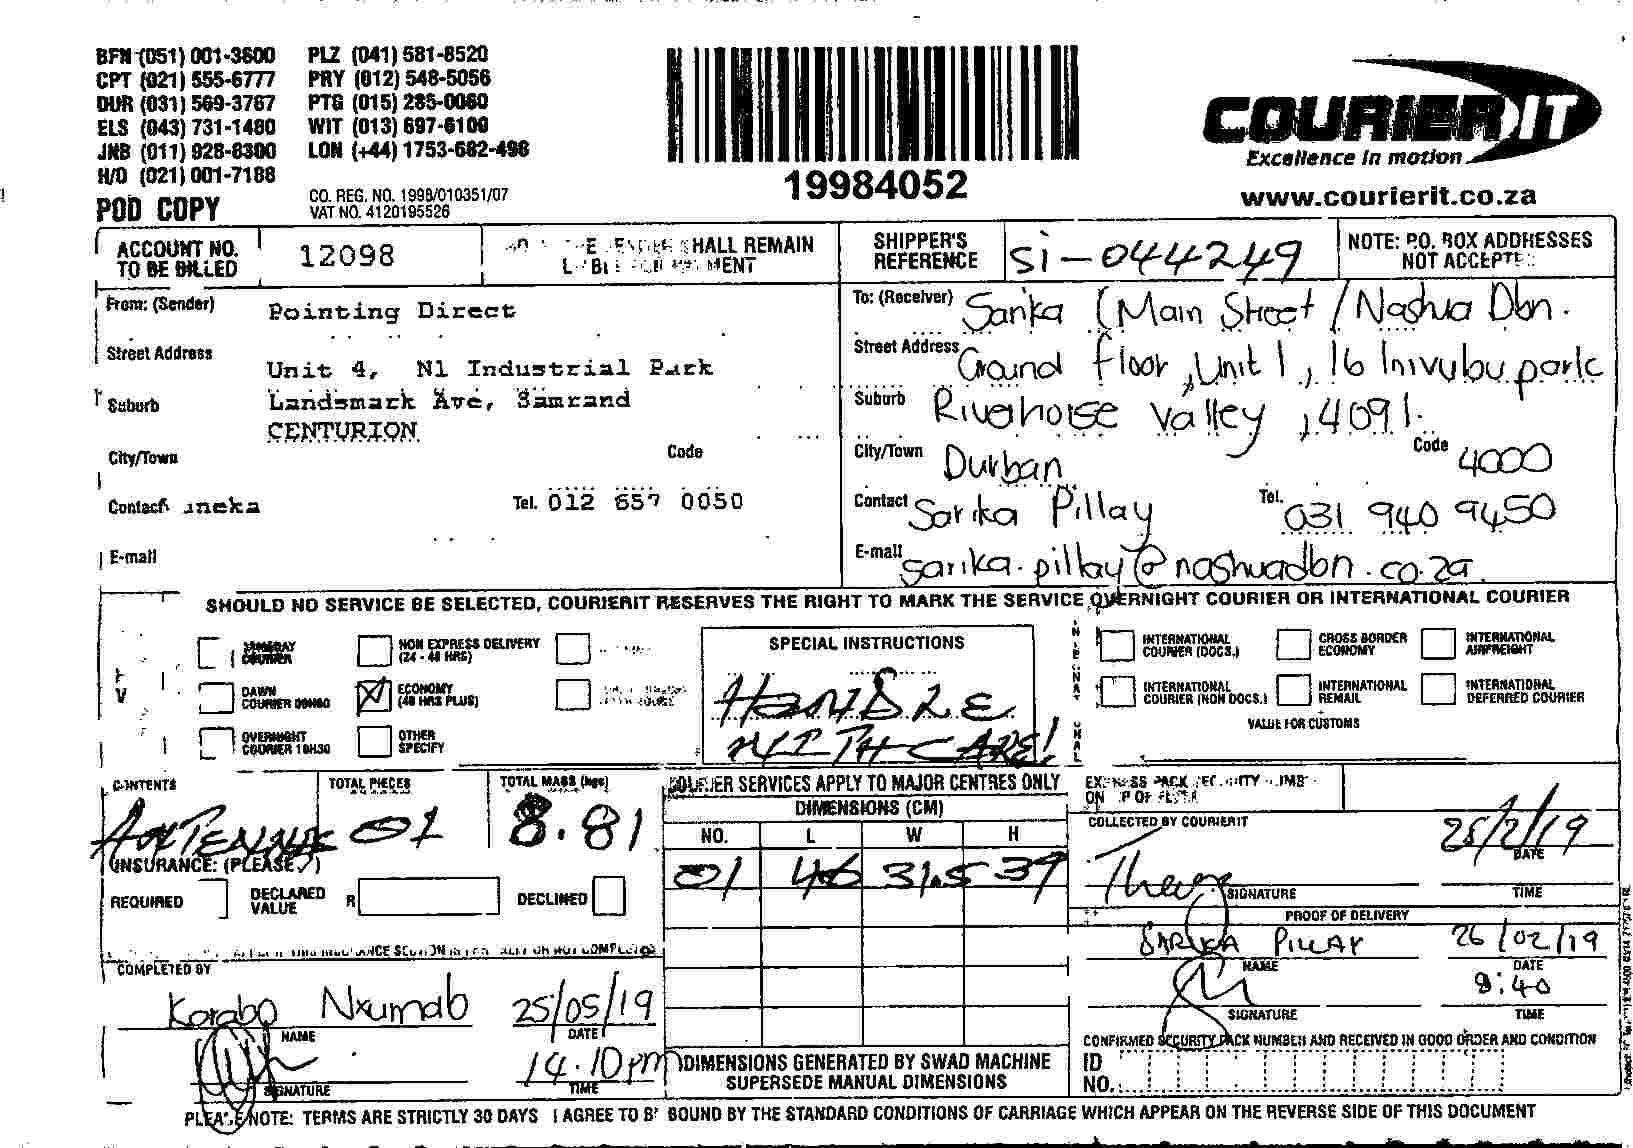 BFN (051) 001-3600 PLZ (041) 581-8520
CPT (021) 555-6777 PRY (012) 548-5056
DUR (031) 569-3767 PTG (015) 285-0060
ELS (043) 731-1480 WIT (013) 697-6100
JNB (011) 928-8300 LON (+44) 1753-682-496
H/O (021) 001-7188
CO. REG. NO. 1998/010351/07
VAT NO. 4120195526
POD COPY
19984052
COURIER IT
Excellence in motion
www.courierit.co.za
ACCOUNT NO. TO BE BILLED 12098
SHALL REMAIN
SHIPPER'S REFERENCE Si-044249
NOTE: P.O. BOX ADDRESSES NOT ACCEPTE
From: (Sender) Pointing Direct
Street Address Unit 4, N1 Industrial Park
Suburb Landsmark Ave, Samrand
CENTURION
City/Town Code
Contact aneka Tel. 012 657 0050
E-mail
To: (Receiver) Sarika (Main Street / Nashua Dbn.
Street Address Ground floor, Unit 1, 16 Inivubu park
Suburb Riverhorse Valley, 4091.
City/Town Durban Code 4000
Contact Sarika Pillay Tel. 031 940 9450
E-mail sarika.pillay@nashuadbn.co.za
SHOULD NO SERVICE BE SELECTED, COURIERIT RESERVES THE RIGHT TO MARK THE SERVICE OVERNIGHT COURIER OR INTERNATIONAL COURIER
SAMEDAY COURIER
NON EXPRESS DELIVERY (24 - 48 HRS)
DAWN COURIER 09H00
ECONOMY (48 HRS PLUS)
OVERNIGHT COURIER 10H30
OTHER SPECIFY
SPECIAL INSTRUCTIONS
HANDLE
WITH CARE!
INTERNATIONAL COURIER (DOCS.)
CROSS BORDER ECONOMY
INTERNATIONAL AIRFREIGHT
INTERNATIONAL COURIER (NON DOCS.)
INTERNATIONAL REMAIL
INTERNATIONAL DEFERRED COURIER
VALUE FOR CUSTOMS
CONTENTS
TOTAL PIECES 01
TOTAL MASS (kgs) 8.81
INSURANCE: (PLEASE ✓)
REQUIRED DECLARED VALUE R DECLINED
COURIER SERVICES APPLY TO MAJOR CENTRES ONLY
DIMENSIONS (CM)
NO. L W H
01 46 31.5 39
COLLECTED BY COURIERIT
25/2/19
DATE
SIGNATURE TIME
PROOF OF DELIVERY
SARIKA PILLAY 26/02/19
NAME DATE
8:40
SIGNATURE TIME
CONFIRMED SECURITY PACK NUMBER AND RECEIVED IN GOOD ORDER AND CONDITION
ID NO.
COMPLETED BY
Korabo Nxumalo 25/05/19
NAME DATE
14.10pm
SIGNATURE TIME
DIMENSIONS GENERATED BY SWAD MACHINE
SUPERSEDE MANUAL DIMENSIONS
PLEASE NOTE: TERMS ARE STRICTLY 30 DAYS I AGREE TO BE BOUND BY THE STANDARD CONDITIONS OF CARRIAGE WHICH APPEAR ON THE REVERSE SIDE OF THIS DOCUMENT